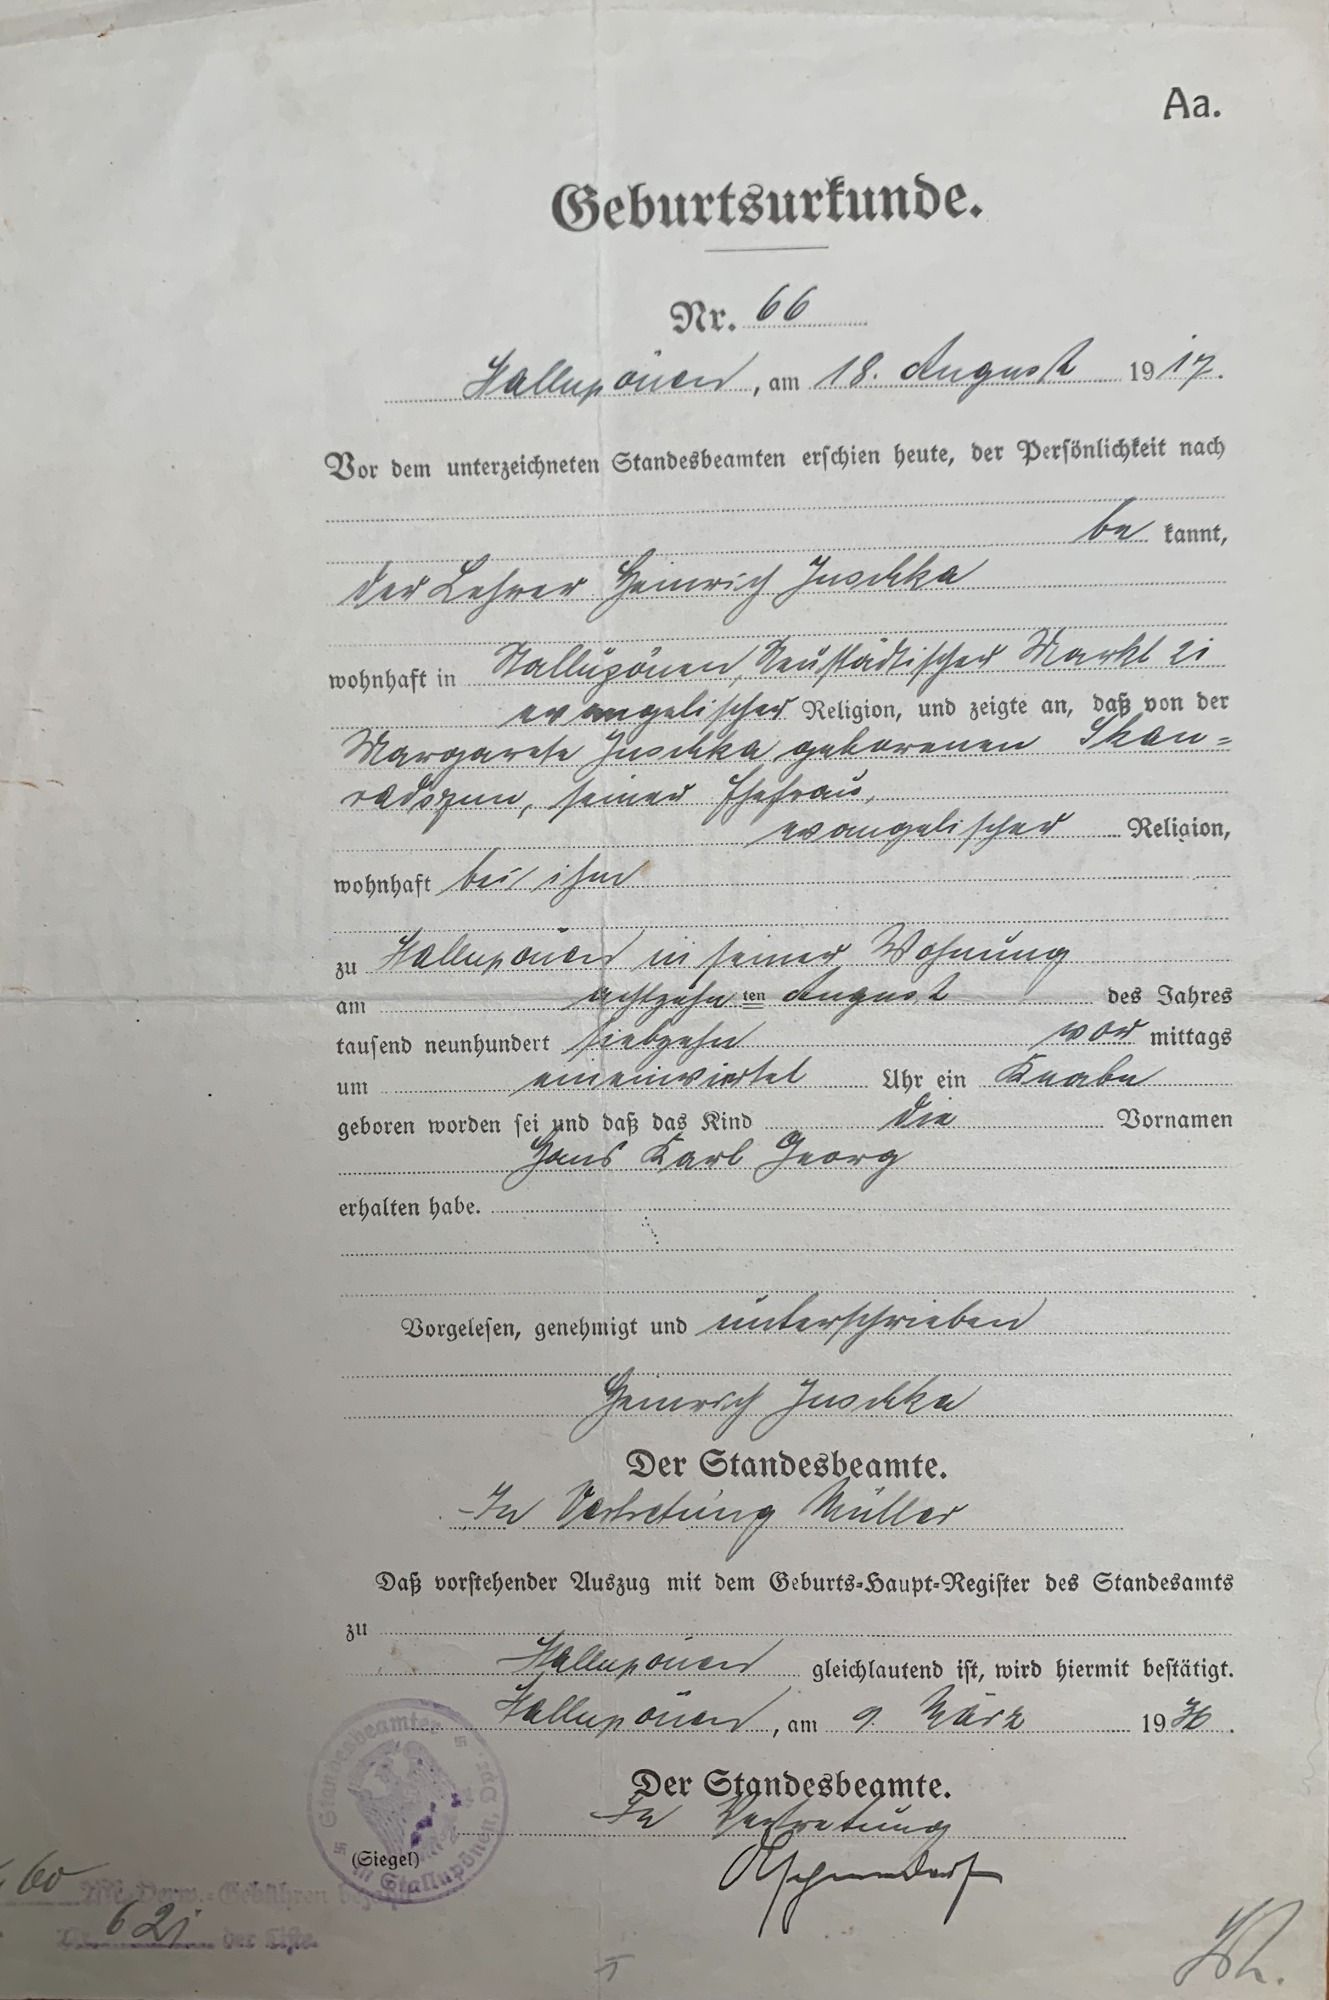 Aa.
Geburtsurkunde.
Nr. 66
Stallupönen, am 18. August 1917.
Vor dem unterzeichneten Standesbeamten erschien heute, der Persönlichkeit nach
be kannt,
der Lehrer Heinrich Juschka
wohnhaft in Stallupönen, Neustädtischer Markt 21
evangelischer Religion, und zeigte an, daß von der
Margarete Juschka geborenen Skan=
radszun, seiner Ehefrau,
evangelischer Religion,
wohnhaft bei ihm
zu Stallupönen in seiner Wohnung
am achtzehn ten August des Jahres
tausend neunhundert siebzehn vor mittags
um eineinviertel Uhr ein Knabe
geboren worden sei und daß das Kind die Vornamen
Hans Karl Georg
erhalten habe.
Vorgelesen, genehmigt und unterschrieben
Heinrich Juschka
Der Standesbeamte.
In Vertretung Müller
Daß vorstehender Auszug mit dem Geburts-Haupt-Register des Standesamts
zu
Stallupönen gleichlautend ist, wird hiermit bestätigt.
Stallupönen, am 9. März 1936.
Der Standesbeamte.
In Vertretung
Standesbeamter
in Stallupönen, Opr.
(Siegel)
60 Verw.-Gebühren
621 der Liste.